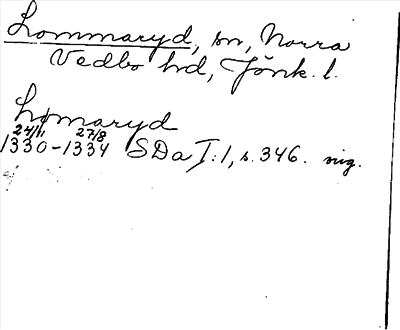 Lommaryd, sn, Norra
Vedbo hd, Jönk. l.
Lomaryd
24/11 27/8
1330-1334 SDa I:1, s. 346. mg.